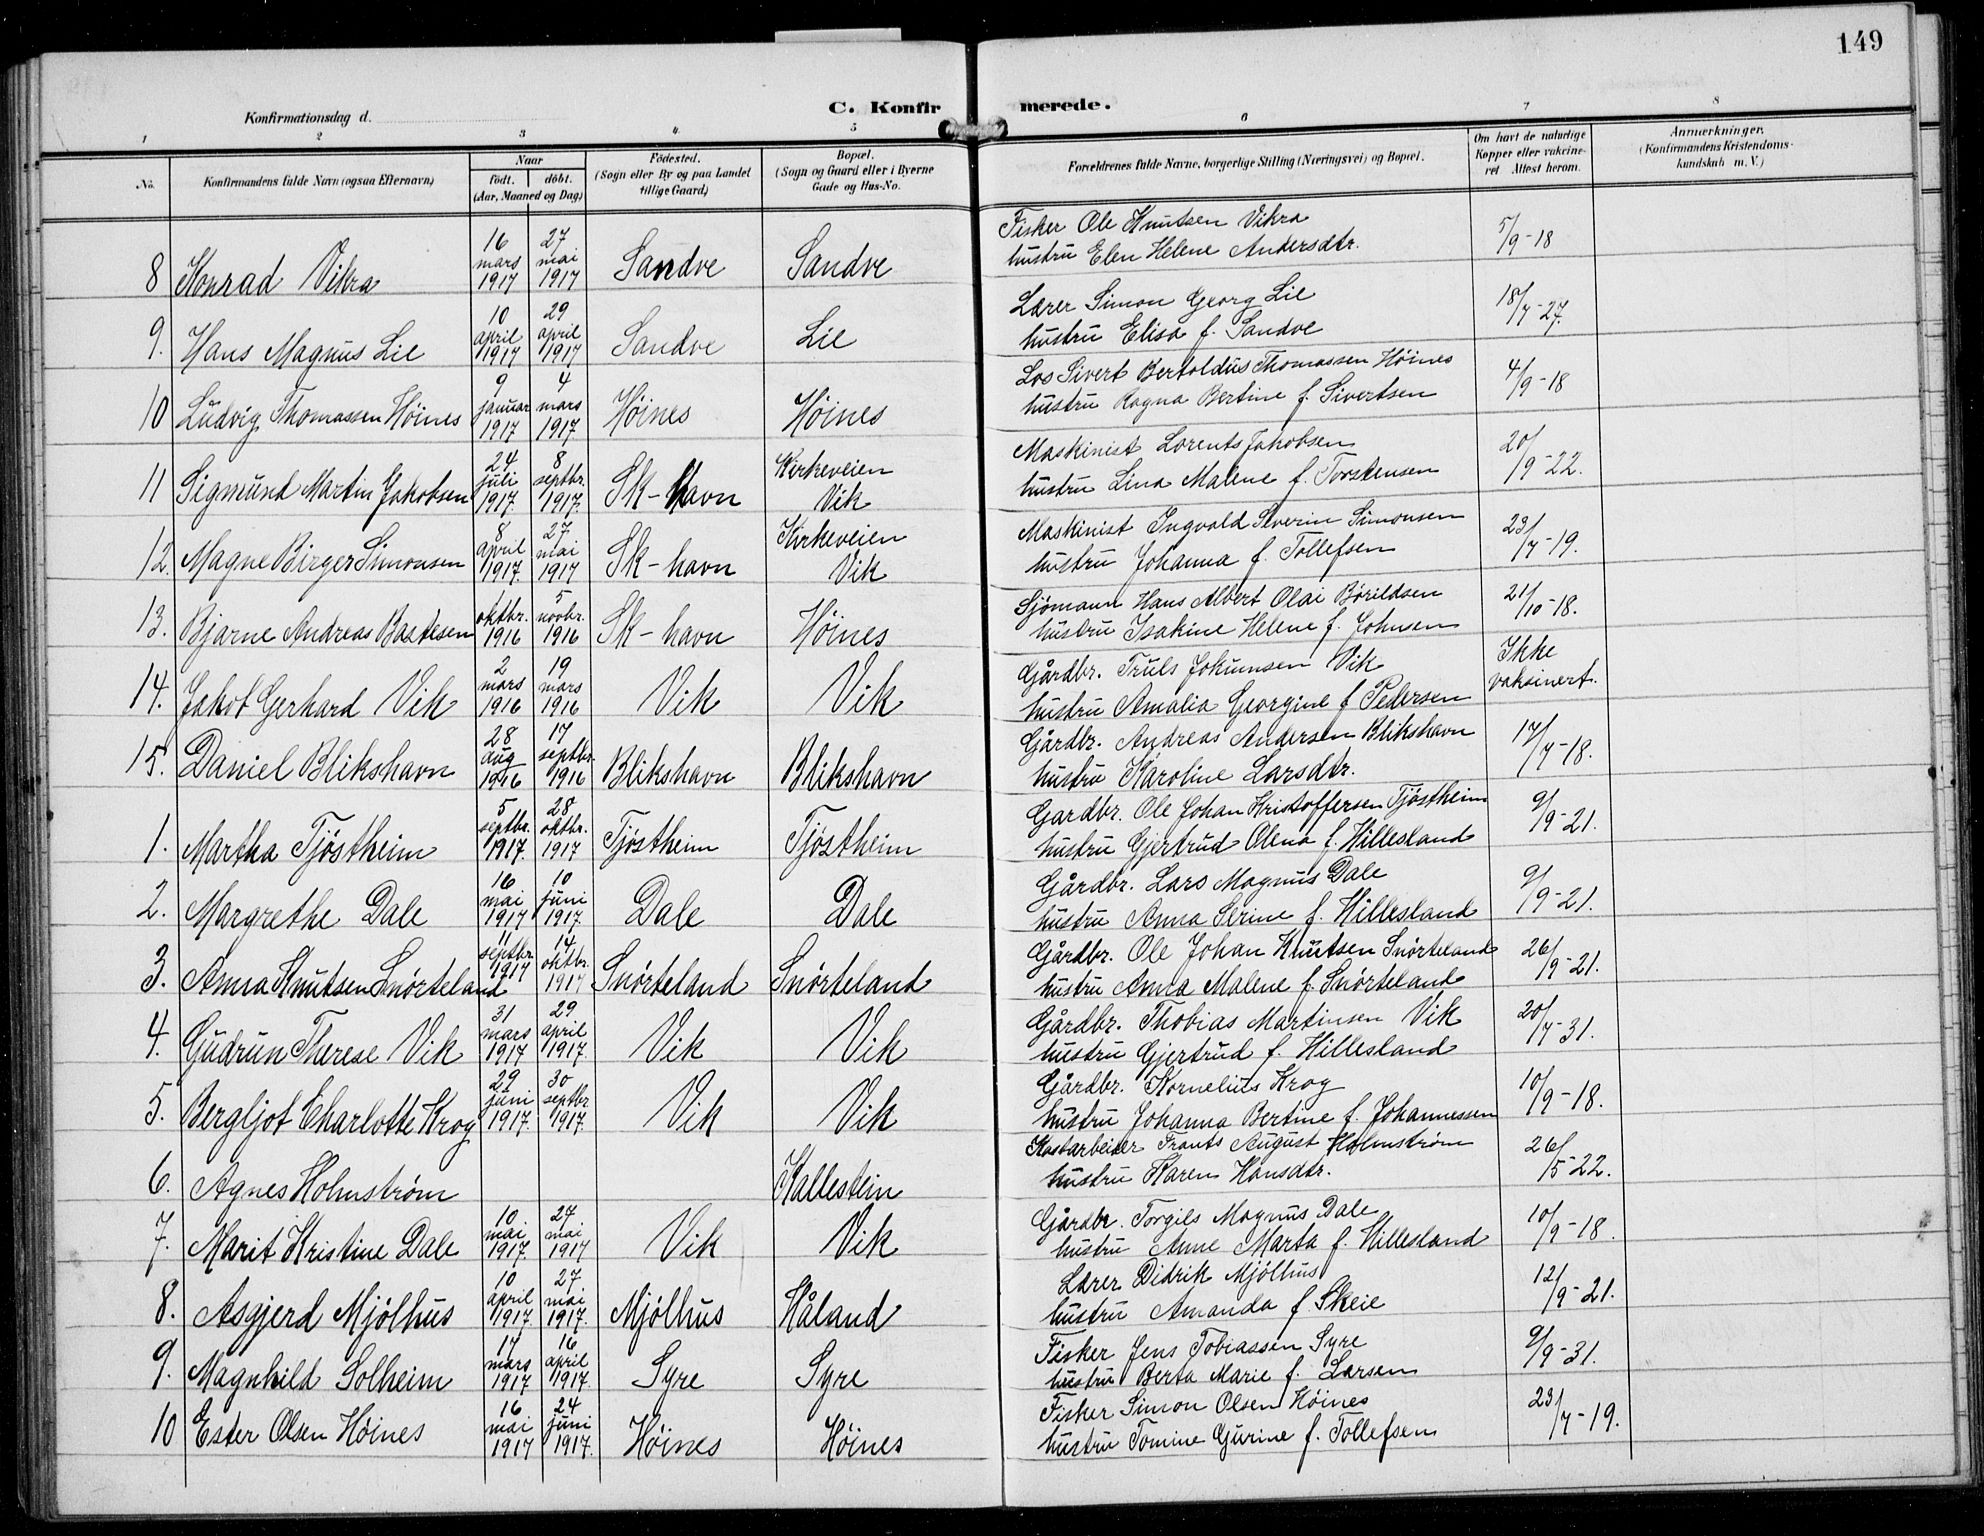 149
C. Konfirmerede.
Konfirmationsdag d.
1 2 3 4 5 6 7 8
No. Konfirmandens fulde Navn (ogsaa Efternavn) Naar født. døbt. (Aar, Maaned og Dag) Fødested. (Sogn eller By og paa Landet tillige Gaard) Bopæl. (Sogn og Gaard eller i Byerne Gade og Hus-No. Forældrenes fulde Navne, borgerlige Stilling (Næringsvei) og Bopæl. Om havt de naturlige Kopper eller vakcineret Attest herom. Anmærkninger. (Konfirmandens Kristendomskundskab m. V.)
8 Konrad Vikra 16 mars 1917 27 mai 1917 Sandve Sandve Fisker Ole Knutsen Vikra 5/9-18
hustru Elen Helene Andersdtr.
9. Hans Magnus Lie 10 april 1917 29 april 1917 Sandve Lie Lærer Simon Georg Lie 18/7-27.
hustru Elisa f. Sandve
10 Ludvig Thomassen Høines 9 januar 1917 4 mars 1917 Høines Høines Los Sivert Bertoldus Thomassen Høines 4/9-18
hustru Ragna Bertine f. Sivertsen
11 Sigmund Martin Jakobsen 24 juli 1917. 8 septbr. 1917. Sk-havn Kirkeveien Vik Maskinist Lorents Jakobsen 20/9-22.
hustru Lina Malene f. Torstensen
12. Magne Birger Simonsen 8 april 1917. 27 mai 1917 Sk-havn Kirkeveien Vik Maskinist Ingvald Severin Simonsen 23/7-19.
hustru Johanna f. Tollefsen
13. Bjarne Andreas Bastesen oktbr. 1916 5 novbr. 1916 Sk-havn Høines Sjömann Hans Albert Olai Børildsen 21/10-18.
hustru Isakine Helene f. Johnsen
14. Jakob Gerhard Vik 2 mars 1916 19 mars 1916 Vik Vik Gårdbr. Truls Jokumsen Vik Ikke vaksinert.
hustru Amalia Georgine f Pedersen
15. Daniel Blikshavn 28 aug 1916 17 septbr. 1916 Blikshavn Blikshavn Gårdbr. Andreas Andersen Blikshavn 17/7-18.
hustru Karoline Larsdtr.
1. Martha Tjøstheim 5 septbr. 1917. 28 oktbr. 1917 Tjøstheim Tjøstheim Gardbr. Ole Johan Kristoffersen Tjøstheim 9/9-21.
hustru Gjertrud Olena f. Hillesland
2. Margrethe Dale 16 mai 1917 10 juni 1917. Dale Dale Gårdbr. Lars Magnus Dale 9/9-21.
hustru Anna Serine f. Hillesland
3. Anna Knutsen Snørteland 11 septbr. 1917 14 oktbr. 1917 Snørteland Snørteland Gårdbr. Ole Johan Knutsen Snørteland 26/9-21.
hustru Anna Malene f. Snørteland
4. Gudrun Therese Vik 31 mars 1917 29 april 1917. Vik Vik Gårdbr. Thobias Martinsen Vik 20/7-31.
hustru Gjertrud f. Hillesland
5. Bergljot Charlotte Krog 29 juni 1917. 30 septbr 1917. Vik Vik Gårdbr. Kornelius Krog 10/9-18.
hustru Johanna Bertine f. Johannessen
6. Agnes Holmstrøm Kallestein Frants August Holmstrøm 26/5-22.
hustru Karen Hansdtr.
7. Marit Kristine Dale 10 mai 1917. 24 mai 1917 Vik Vik Gårdbr. Torgils Magnus Dale 10/9-18.
hustru Anne Marta f. Hillesland
8. Asgjerd Mjølhus 10 april 1917. 27 mai 1917. Mjølhus Håland Lærer Didrik Mjølhus 12/9-21.
hustru Amanda f Skeie
9. Magnhild Solheim 17 mars 1917 16 april 1917. Syre Syre Fisker Jens Tobiassen Syre 9/9-31.
hustru Berta Marie f. Larsen
10 Ester Olsen Høines 16 mai 1917 24 juni 1917. Høines Høines Fisker Simon Olsen Høines 23/7-19.
hustru Tomine Gurine f. Tollefsen